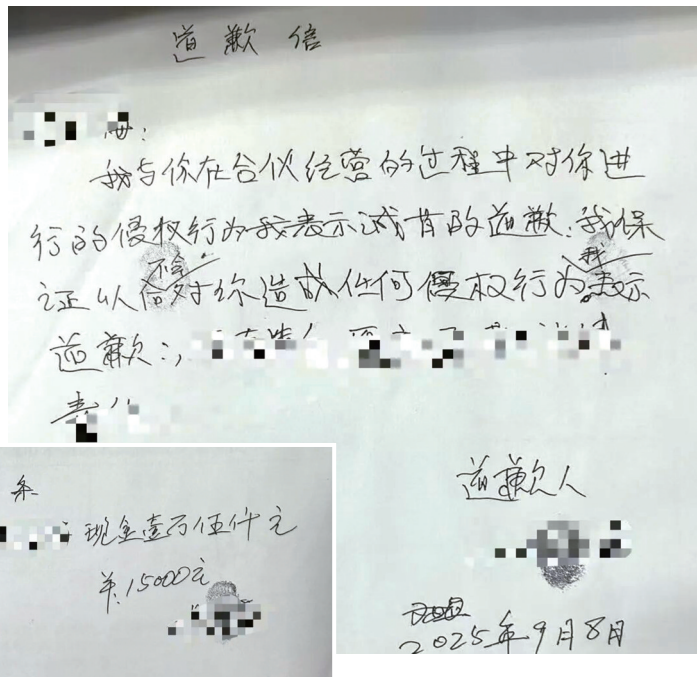 道歉信
我与你在合伙经营的过程中对你进
行的侵权行为我表示诚肯的道歉:我保
不会 我
证以后对你造成任何侵权行为。表示
道歉:,
道歉人
2025年9月8日
条
现金壹万伍仟元
¥:15000元